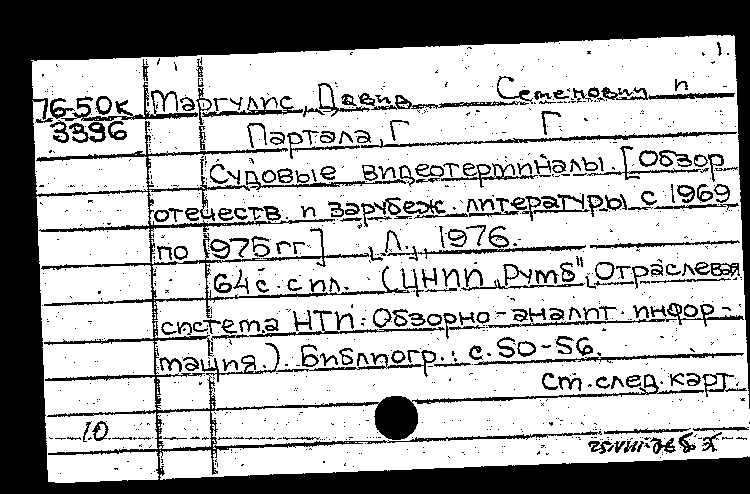 1.
76-50к Маргулис, Давид Семенович и
3396 Партала, Г Г
Судовые видеотерминалы. [Обзор
отечеств. и зарубеж. литературы с 1969
по 1975 гг.] Л., 1976.
64 с. с ил. (ЦНИИ "Румб", Отраслевая
система НТИ. Обзорно-аналит. инфор-
мация.). Библиогр.: с. 50-56.
см. след. карт.
10